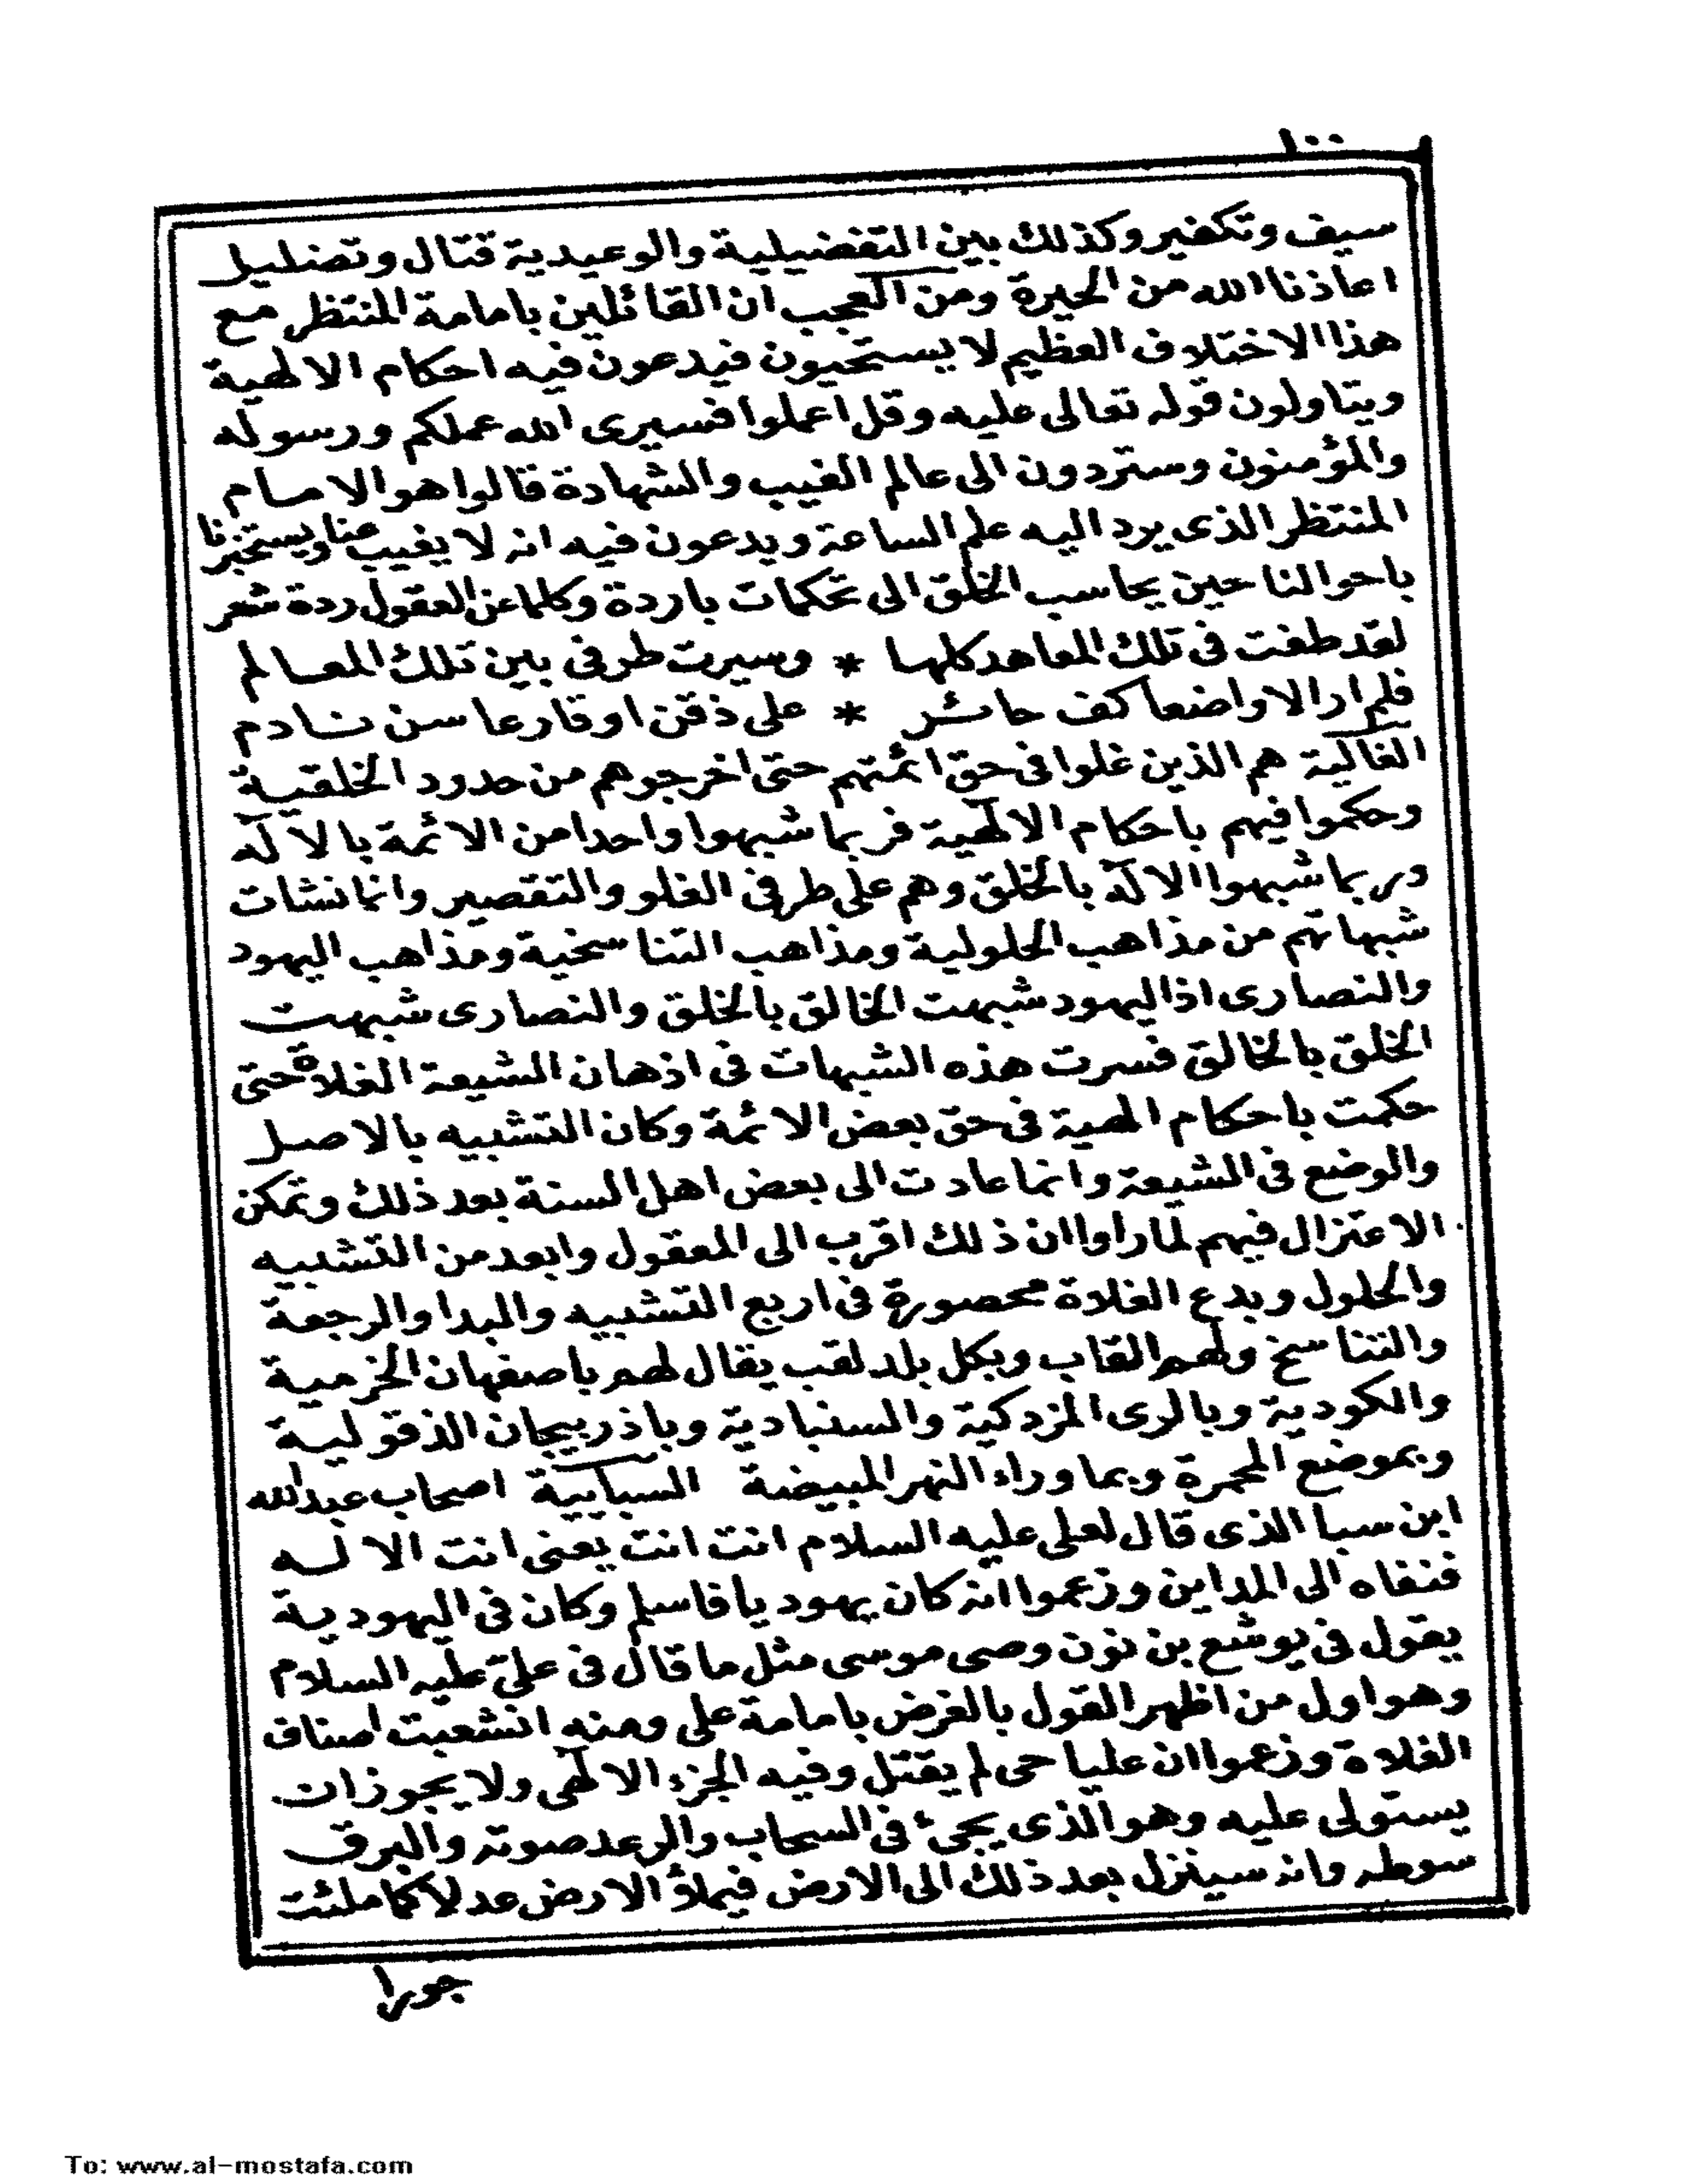 ١٠٠
سيف وتكفير وكذلك بين التفضيلية والوعيدية قتال وتضليل
اعاذنا الله من الحيرة ومن العجب ان القائلين بامامة المنتظر مع
هذا الاختلاف العظيم لا يستحيون فيدعون فيه احكام الالهية
ويتاولون قوله تعالى عليه وقل اعملوا فسيرى الله عملكم ورسوله
والمؤمنون وستردون الى عالم الغيب والشهادة قالوا هو الامام
المنتظر الذى يرد اليه علم الساعة ويدعون فيه انه لا يغيب عنا ويستخبرنا
باحوالنا حين يحاسب الخلق الى تحكمات باردة وكلما عن العقول ردة شعر
لقد طفت فى تلك المعاهد كلها * وسيرت طرفى بين تلك المعالم
فلم ار الا واضعا كف حائر * على ذقن او قارعا سن نادم
الغالية هم الذين غلوا فى حق ائمتهم حتى اخرجوهم من حدود الخلقية
وحكموا فيهم باحكام الالهية فربما شبهوا واحدا من الائمة بالاله
وربما شبهوا الاله بالخلق وهم على طرفى الغلو والتقصير وانما نشات
شبهاتهم من مذاهب الحلولية ومذاهب التناسخية ومذاهب اليهود
والنصارى اذ اليهود شبهت الخالق بالخلق والنصارى شبهت
الخلق بالخالق فسرت هذه الشبهات فى اذهان الشيعة الغلاة حتى
حكمت باحكام الهية فى حق بعض الائمة وكان التشبيه بالاصل
والوضع فى الشيعة وانما عادت الى بعض اهل السنة بعد ذلك وتمكن
الاعتزال فيهم لما راوا ان ذلك اقرب الى المعقول وابعد من التشبيه
والحلول وبدع الغلاة محصورة فى اربع التشبيه والبدا والرجعة
والتناسخ ولهم القاب وبكل بلد لقب يقال لهم باصفهان الخرمية
والكودية وبالرى المزدكية والسنبادية وباذربيجان الذقولية
وبموضع المحمرة وبما وراء النهر المبيضة السبايية اصحاب عبد الله
ابن سبا الذى قال لعلى عليه السلام انت انت يعنى انت الاله
فنفاه الى المداين وزعموا انه كان يهوديا فاسلم وكان فى اليهودية
يقول فى يوشع بن نون وصى موسى مثل ما قال فى على عليه السلام
وهو اول من اظهر القول بالفرض بامامة على ومنه انشعبت اصناف
الغلاة وزعموا ان عليا حى لم يقتل وفيه الجزء الالهى ولا يجوز ان
يستولى عليه وهو الذى يجئ فى السحاب والرعد صوته والبرق
سوطه وانه سينزل بعد ذلك الى الارض فيملؤ الارض عدلا كما ملئت
جورا
To: www.al-mostafa.com